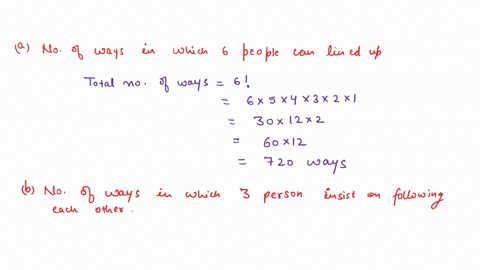 (a) No. of ways in which 6 people can lined up
Total no. of ways = 6!
= 6 × 5 × 4 × 3 × 2 × 1
= 30 × 12 × 2
= 60 × 12
= 720 ways
(b) No. of ways in which 3 person insist on following
each other.